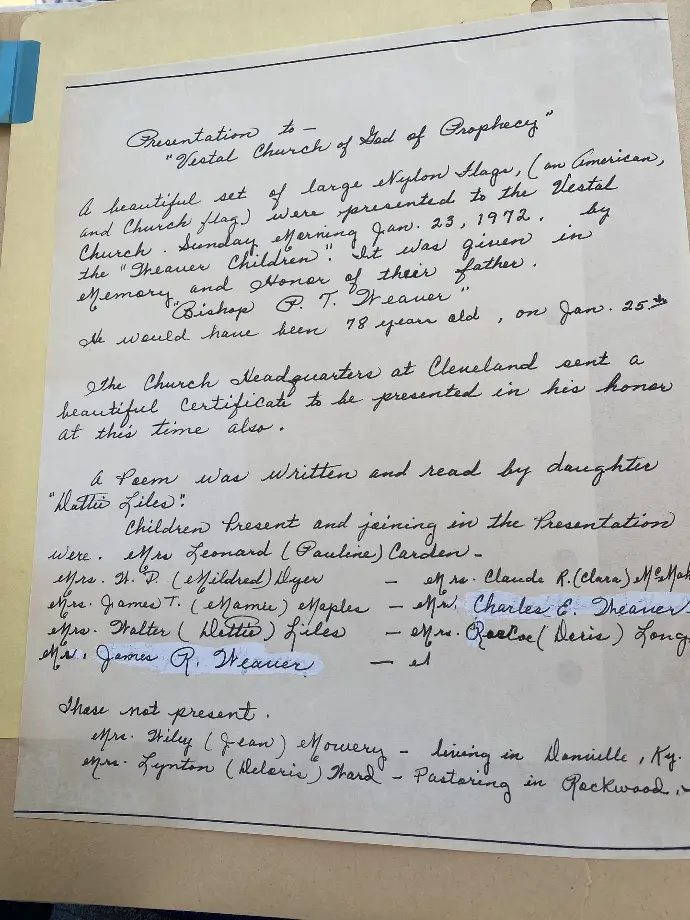 Presentation to —
"Vestal Church of God of Prophecy"
A beautiful set of large Nylon Flags, (an American,
and Church flag) were presented to the Vestal
Church. Sunday Morning Jan. 23, 1972. by
the "Weaver Children". It was given in
Memory and Honor of their father.
"Bishop P. T. Weaver"
He would have been 78 years old, on Jan. 25th
The Church Headquarters at Cleveland sent a
beautiful Certificate to be presented in his honor
at this time also.
A Poem was written and read by daughter
"Dottie Liles".
Children Present and joining in the Presentation
were. Mrs Leonard (Pauline) Carden —
Mrs. W. P. (Mildred) Dyer — Mrs. Claude R. (Clara) McMah
Mrs. James T. (Mamie) Maples — Mr. Charles E. Weaver
Mrs. Walter (Dottie) Liles — Mrs. Roscoe (Doris) Long
Mr. James R. Weaver —
Those not present.
Mrs. Wiley (Jean) Mowery — living in Danville, Ky.
Mrs. Lynton (Deloris) Ward — Pastoring in Rockwood,